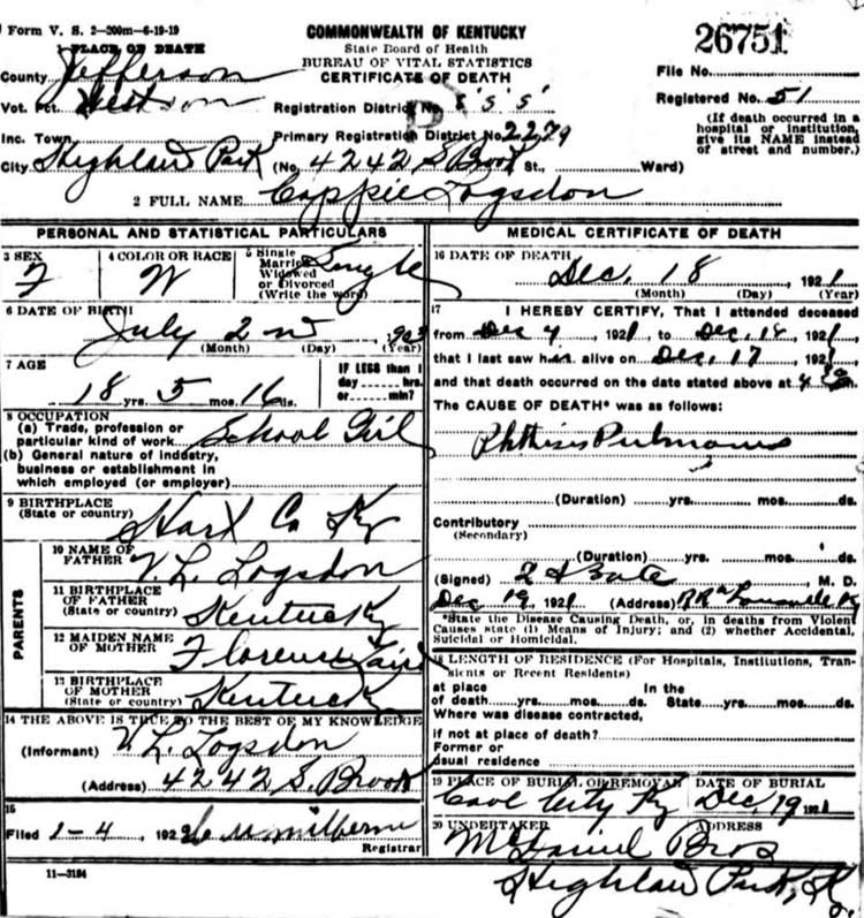 Form V. S. 2-200m-6-19-19
COMMONWEALTH OF KENTUCKY
State Board of Health
BUREAU OF VITAL STATISTICS
CERTIFICATE OF DEATH
26751
File No.
Registered No. 51
(If death occurred in a hospital or institution, give its NAME instead of street and number.)
1 PLACE OF DEATH
County Jefferson
Vot. Pct.
Registration District No. 555
Inc. Town
Primary Registration District No. 2279
City Highland Park (No. 4242 S Brook St., Ward)
2 FULL NAME Cappie Logsdon
PERSONAL AND STATISTICAL PARTICULARS
3 SEX
F
4 COLOR OR RACE
W
5 Single
Married
Widowed
or Divorced
(Write the word)
Single
6 DATE OF BIRTH
July 2nd, 1903
(Month) (Day) (Year)
7 AGE
18 yrs. 5 mos. 16 ds.
IF LESS than 1
day hrs.
or min?
8 OCCUPATION
(a) Trade, profession or
particular kind of work School Girl
(b) General nature of industry,
business or establishment in
which employed (or employer)
9 BIRTHPLACE
(State or country)
Hart Co Ky
PARENTS
10 NAME OF
FATHER V. L. Logsdon
11 BIRTHPLACE
OF FATHER
(State or country) Kentucky
12 MAIDEN NAME
OF MOTHER Florence
13 BIRTHPLACE
OF MOTHER
(State or country) Kentucky
14 THE ABOVE IS TRUE TO THE BEST OF MY KNOWLEDGE
(Informant) V. L. Logsdon
(Address) 4242 S. Brook
15
Filed 1-4, 192
Registrar
11-3184
MEDICAL CERTIFICATE OF DEATH
16 DATE OF DEATH
Dec. 18, 1921
(Month) (Day) (Year)
17
I HEREBY CERTIFY, That I attended deceased
from Dec 4, 1921, to Dec. 18, 1921,
that I last saw her alive on Dec. 17, 1921,
and that death occurred on the date stated above at 4
The CAUSE OF DEATH* was as follows:
Phthisis Pulmonalis
(Duration) yrs. mos. ds.
Contributory
(Secondary)
(Duration) yrs. mos. ds.
(Signed) Bate, M. D.
Dec 19, 1921 (Address) Louisville K
*State the Disease Causing Death, or, in deaths from Violent
Causes state (1) Means of Injury; and (2) whether Accidental,
Suicidal or Homicidal.
18 LENGTH OF RESIDENCE (For Hospitals, Institutions, Tran-
sients or Recent Residents)
at place In the
of death yrs. mos. ds. State yrs. mos. ds.
Where was disease contracted,
if not at place of death?
Former or
usual residence
19 PLACE OF BURIAL OR REMOVAL DATE OF BURIAL
Cave City Ky Dec, 19 1921
20 UNDERTAKER ADDRESS
McDaniel Bros
Highland Park, K